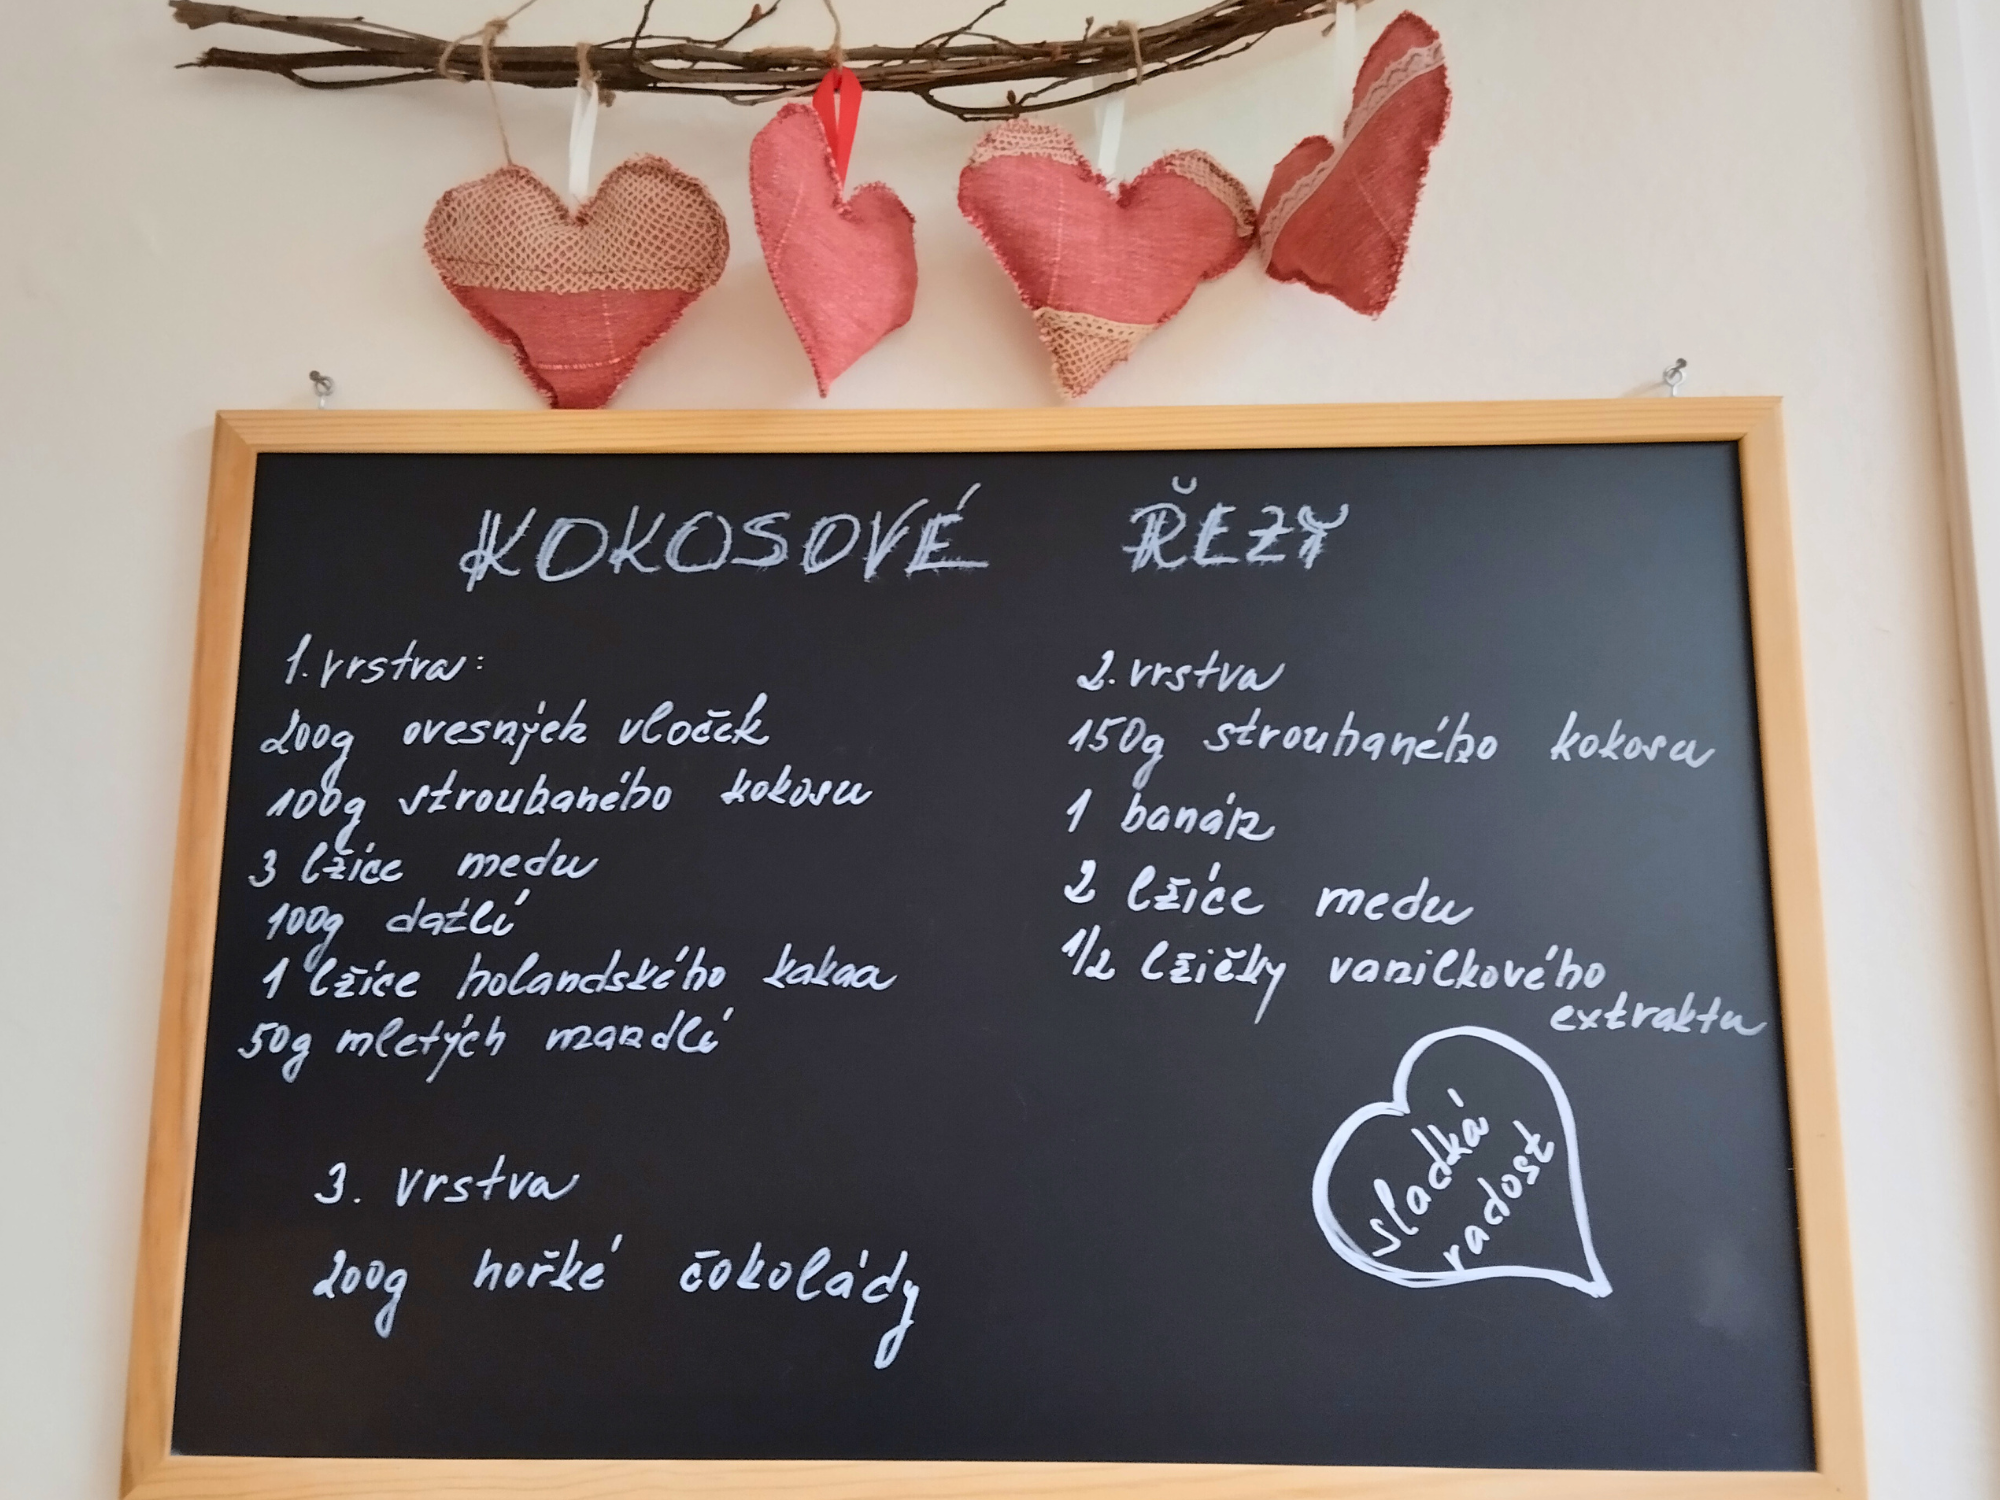 KOKOSOVÉ ŘEZY
1. vrstva:
200g ovesných vloček
100g strouhaného kokosu
3 lžíce medu
100g datlí
1 lžíce holandského kakaa
50g mletých mandlí
2. vrstva
150g strouhaného kokosu
1 banán
2 lžíce medu
1/2 lžičky vanilkového
extraktu
3. vrstva
200g hořké čokolády
sladká
radost